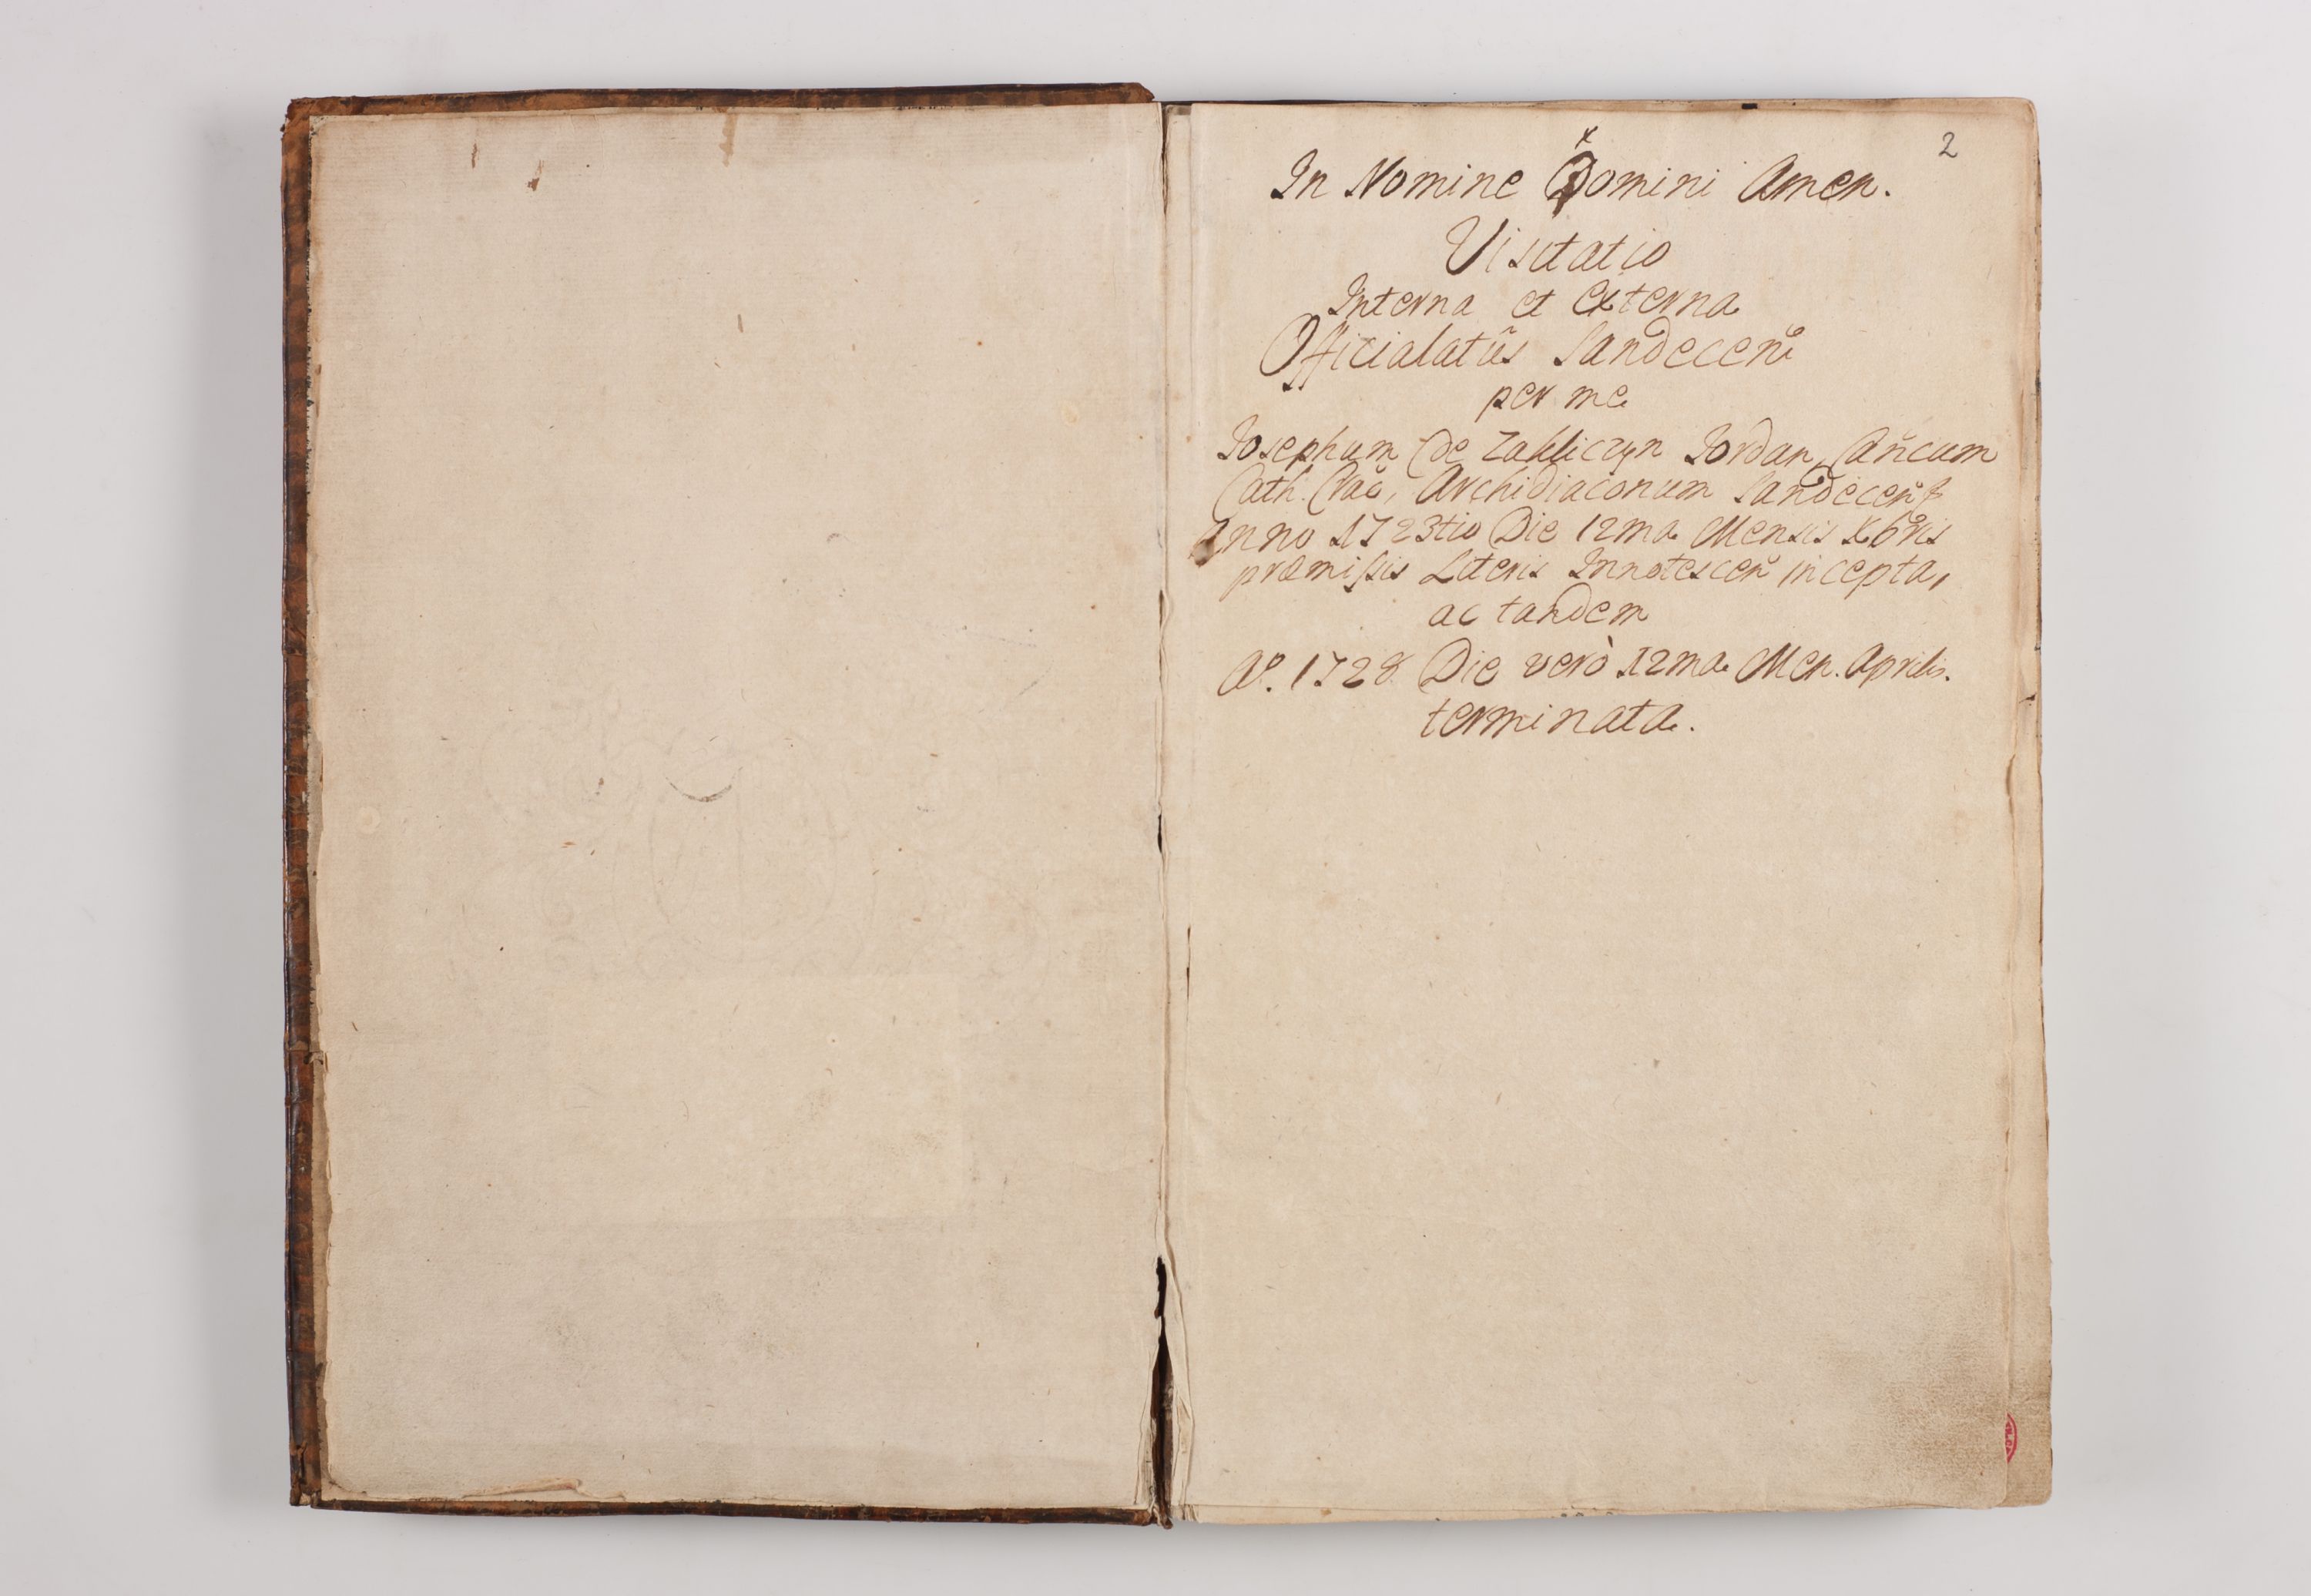 2
In Nomine Domini Amen.
Visitatio
Interna et Externa
Officialatûs Sandecen̄
per me
Josephum De Zakliczyn Jordan, Can̄cum
Cath. Crac̄, Archidiaconum Sandecen̄
Anno 1723tio Die 12ma Mensis Xbris
præmissis Literis Innotescen̄ incepta,
ac tandem
Aº. 1728 Die verò 12ma Men. Aprilis.
terminata.